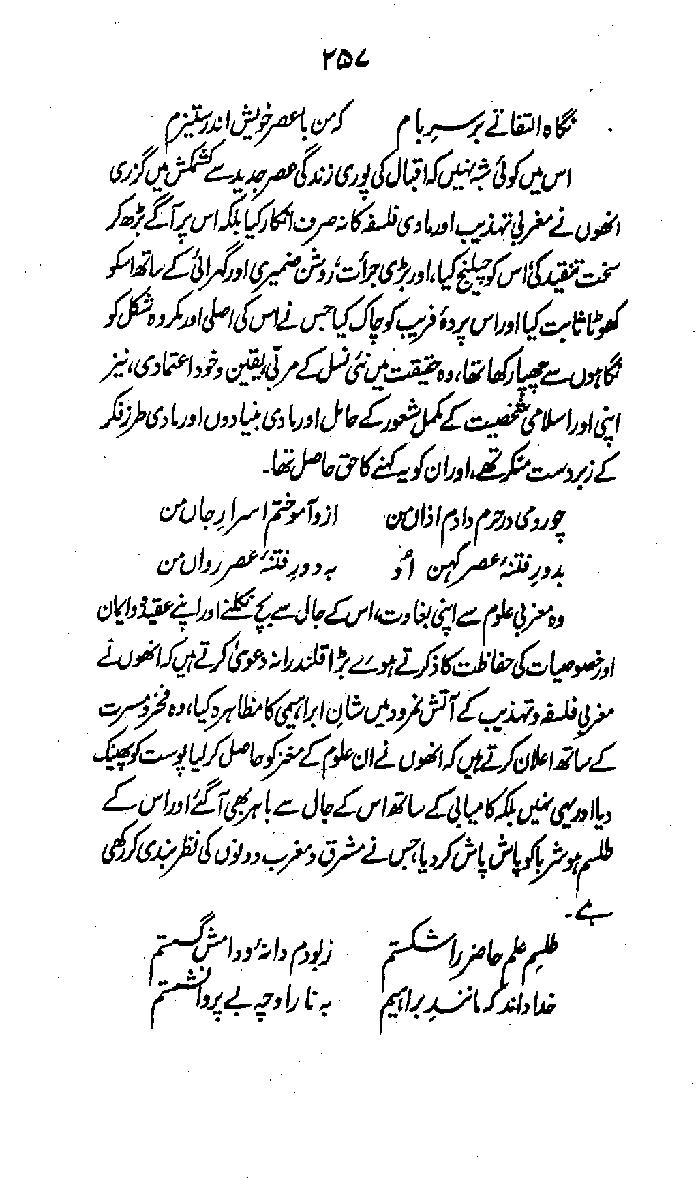 ۲۵۷
نگاہ التفاتے بر سرِ بام کہ من با عصر خویش اندر ستیزم
اس میں کوئی شبہ نہیں کہ اقبال کی پوری زندگی عصر جدید سے کشمکش میں گزری
انھوں نے مغربی تہذیب اور مادی فلسفہ کا نہ صرف انکار کیا بلکہ اس پر آگے بڑھ کر
سخت تنقید کی، اس کو چیلنج کیا، اور بڑی جرأت، روشن ضمیری اور گہرائی کے ساتھ اسکو
کھوٹا ثابت کیا اور اس پردۂ فریب کو چاک کیا جس نے اس کی اصلی اور مکروہ شکل کو
نگاہوں سے چھپا رکھا تھا، وہ حقیقت میں نئی نسل کے مربّی یقین و خود اعتمادی، نیز
اپنی اور اسلامی شخصیت کے مکمل شعور کے حامل اور مادی بنیادوں اور مادی طرزِ فکر
کے زبردست منکر تھے، اور ان کو یہ کہنے کا حق حاصل تھا۔
چو رومی در حرم دادم اذاں من ازو آموختم اسرارِ جاں من
بدورِ فتنۂ عصرِ کہن اُو بہ دورِ فتنۂ عصرِ رواں من
وہ مغربی علوم سے اپنی بغاوت، اس کے جال سے بچ نکلنے اور اپنے عقیدہ و ایمان
اور خصوصیات کی حفاظت کا ذکر کرتے ہوے بڑا قلندرانہ دعویٰ کرتے ہیں کہ انھوں نے
مغربی فلسفہ و تہذیب کے آتشِ نمرود میں شانِ ابراہیمی کا مظاہرہ کیا، وہ فخر و مسرت
کے ساتھ اعلان کرتے ہیں کہ انھوں نے ان علوم کے مغز کو حاصل کر لیا پوست کو پھینک
دیا اور یہی نہیں بلکہ کامیابی کے ساتھ اس کے جال سے باہر بھی آگئے اور اس کے
طلسم ہوشربا کو پاش پاش کر دیا، جس نے مشرق و مغرب دونوں کی نظر بندی کر رکھی
ہے۔
طلسِم علمِ حاضر را شکستم ربودم دانہ و دامش گسستم
خدا داند کہ مانندِ براہیم بہ نارِ او چہ بے پروا نشستم